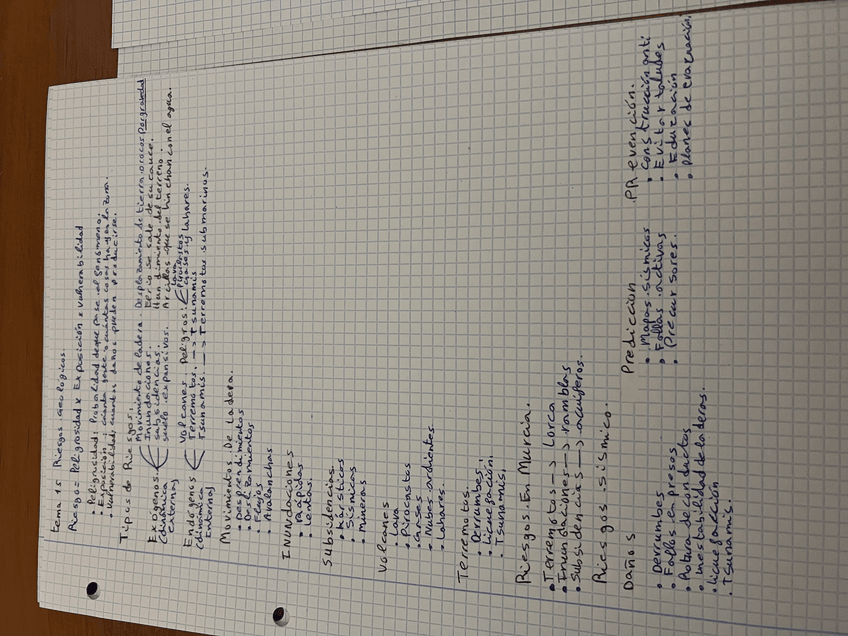 tema 15 Riesgos Geológicos.
Riesgo = Peligrosidad x Exposición x vulnerabilidad
• Peligrosidad: Probabilidad de que pase el fenómeno.
• Exposición: cuánta gente o cuántas cosas hay en la zona.
• Vulnerabilidad: cuantos daños pueden producirse.
Tipos de Riesgos.
Exógenos (dinámica externa)
Movimiento de ladera. Desplazamiento de tierra o rocas por gravedad
Inundaciones. El río se sale de su cauce.
subsidencias. Hundimiento del terreno.
suelo expansivos. Arcillas que se hinchan con el agua.
Endógenos (dinámica interna)
Volcanes. Peligros: lava Piroclastos gases y lahares.
Terremotos. → Tsunamis
Tsunamis. → Terremotos submarinos.
Movimientos De Ladera.
• Desprendimientos
• Deslizamientos
• Flujos
• Avalanchas
INUNDACIONES
• Rápidas
• Lentas.
Subsidencias.
• Kársticos
• Sísmicos
• mineros
Volcanes
• Lava
• Piroclastos
• Gases
• Nubes ardientes
• Lahares.
Terremotos
• Derrumbes
• Licuefacción.
• Tsunamis.
Riesgos En Murcia.
• Terremotos → Lorca
• Inundaciones → ramblas
• Subsidencias → acuíferos.
Riesgos sísmico.
Daños
• Derrumbes
• Fallos en presas
• Rotura de conductos
• inestabilidad de laderas.
• licuefacción
• Tsunamis.
Predicción
• Mapas sísmicos
• Fallas activas
• Precursores.
PRevención.
• Construcción anti
• Evitar taludes
• Educación
• planes de evacuación.